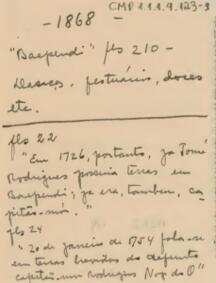 CMP 1.1.9.123-3
- 1868 -
"Baependi" fls 210 -
Dansas, festuários, doces
etc.
fls 22
"Em 1726, portanto, ja Tomé
Rodrigues possuia terras em
Baependi; ja era, tambem, ca-
pitão-mór."
fls 24
"20 de janeiro de 1754 fala-se
em terras havidas do defunto
capitão-mor Rodrigues Nog. do Ó"